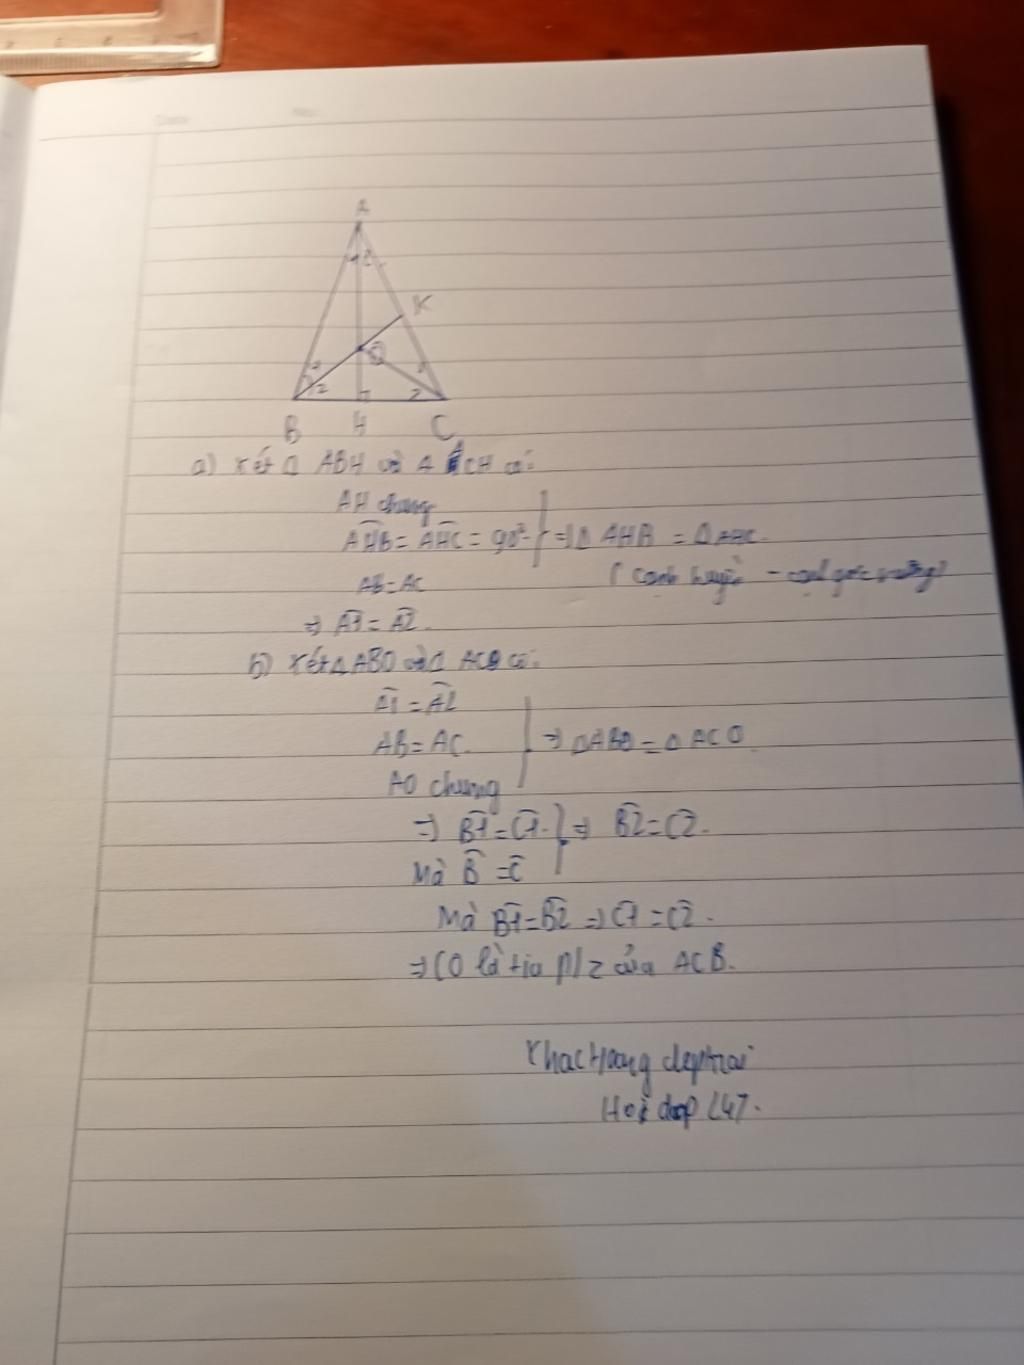 A
1 2
K
O
1 2 1 2
B H C
a) Xét Δ ABH và Δ ACH có:
AH chung
AHB = AHC = 90° => Δ AHB = Δ AHC
AB = AC (cạnh huyền - cạnh góc vuông)
=> A1 = A2.
b) Xét Δ ABO và Δ ACO có:
A1 = A2
AB = AC. => Δ ABO = Δ ACO
AO chung
=> B1 = C1. => B2 = C2.
Mà B = C
Mà B1 = B2 => C1 = C2.
=> CO là tia p/z của ACB.
deptrai
Hoi dap 247.